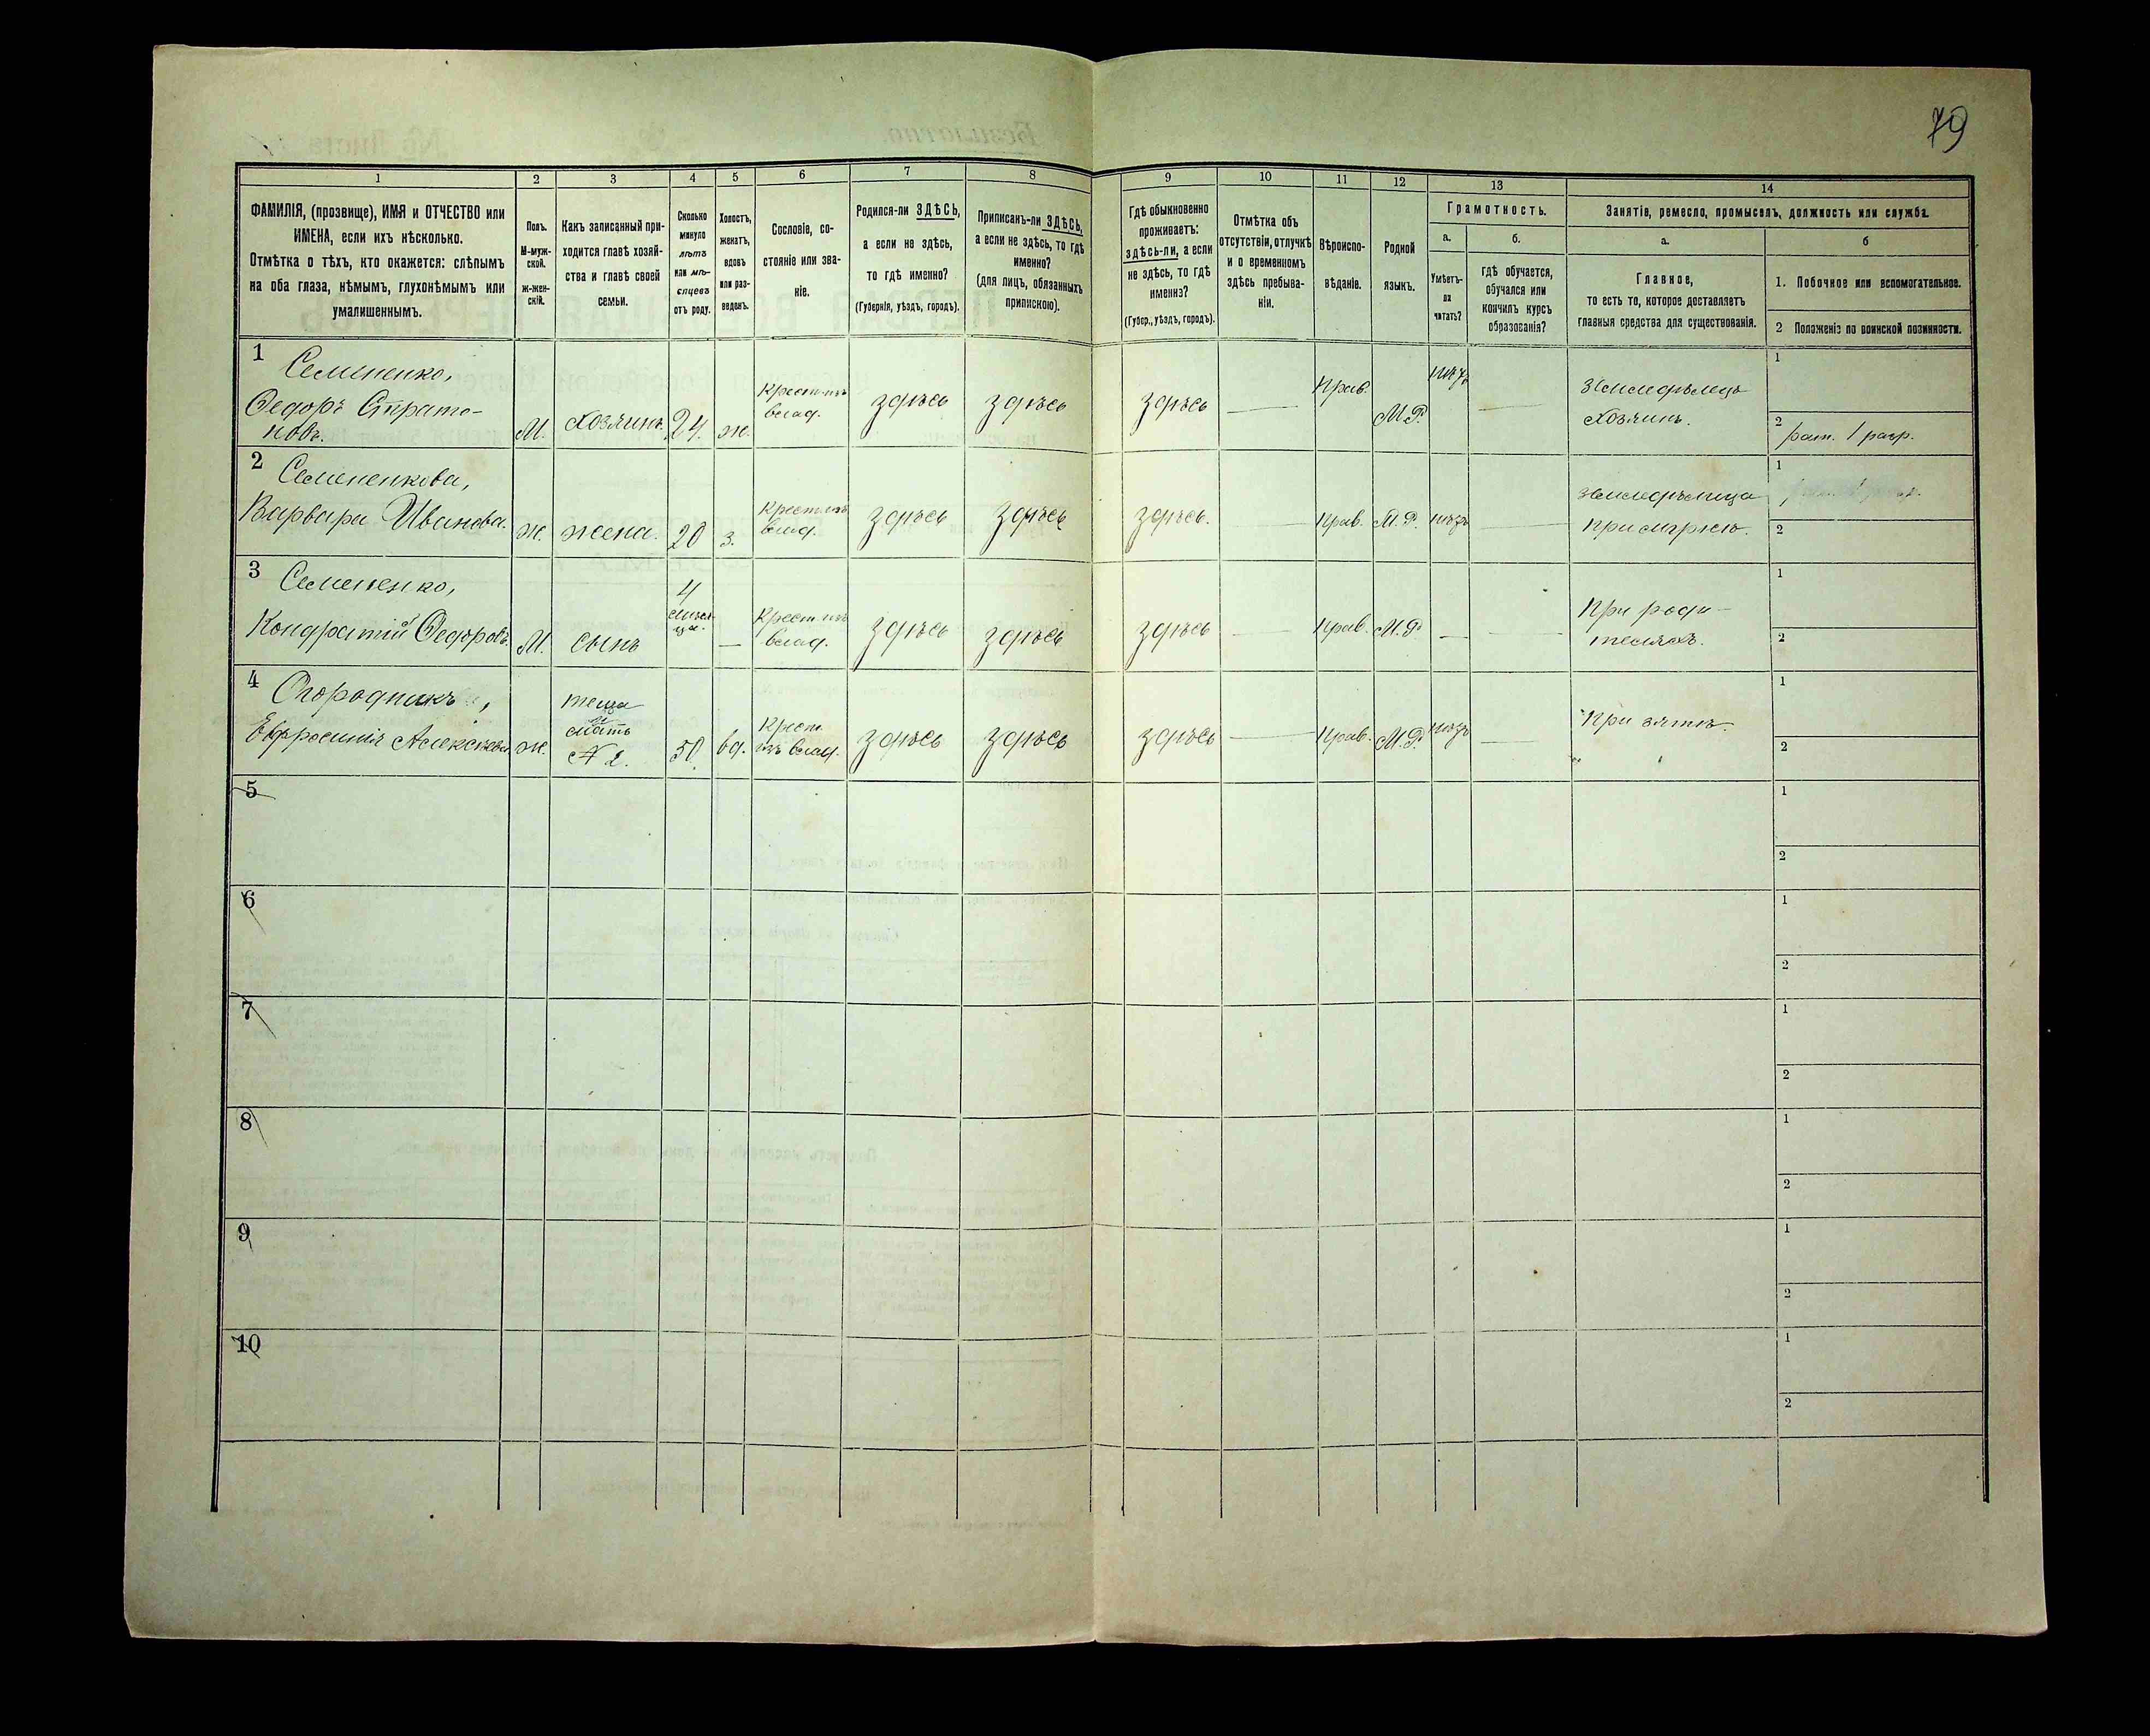 79
1 2 3 4 5 6 7 8 9 10 11 12 13 14
ФАМИЛІЯ, (прозвище), ИМЯ и ОТЧЕСТВО или
ИМЕНА, если ихъ нѣсколько.
Отмѣтка о тѣхъ, кто окажется: слѣпымъ
на оба глаза, нѣмымъ, глухонѣмымъ или
умалишеннымъ.
Полъ.
М-муж-
ской.
ж-жен-
скій.
Какъ записанный при-
ходится главѣ хозяй-
ства и главѣ своей
семьи.
Сколько
минуло
лѣтъ
или мѣ-
сяцевъ
отъ роду.
Холостъ,
женатъ,
вдовъ
или раз-
веденъ.
Сословіе, со-
стояніе или зва-
ніе.
Родился-ли ЗДѢСЬ,
а если не здѣсь,
то гдѣ именно?
(Губернія, уѣздъ, городъ).
Приписанъ-ли ЗДѢСЬ,
а если не здѣсь, то гдѣ
именно?
(для лицъ, обязанныхъ
припискою).
Гдѣ обыкновенно
проживаетъ:
здѣсь-ли, а если
не здѣсь, то гдѣ
именнэ?
(Губер., уѣздъ, городъ).
Отмѣтка объ
отсутствіи, отлучкѣ
и о временномъ
здѣсь пребыва-
ніи.
Вѣроиспо-
вѣданіе.
Родной
языкъ.
Грамотность.
а.
Умѣетъ-
ли
читать?
б.
гдѣ обучается,
обучался или
кончилъ курсъ
образованія?
Занятіе, ремесло, промыселъ, должность или служба.
а.
Главное,
то есть то, которое доставляетъ
главныя средства для существованія.
б
1. Побочное или вспомогательное.
2 Положеніе по воинской повинности.
1 Семененко,
Федоръ Страто-
новъ.
М. Хозяинъ. 24. ж.
Крест. изъ
влад.
здѣсь здѣсь здѣсь — Прав. М.Р. нѣтъ —
Земледѣлецъ
Хозяинъ.
1
2 рат. 1 разр.
2 Семененкова,
Варвара Иванова.
ж. жена. 20 з.
Крест. изъ
влад.
здѣсь здѣсь здѣсь. — Прав. М.Р. нѣтъ —
земледѣлица
при мужѣ.
1
2
3 Семененко,
Кондратій Федоровъ.
М. сынъ
4
мѣся-
ца.
—
Крест. изъ
влад.
здѣсь здѣсь здѣсь — Прав. М.Р. — —
При роди-
теляхъ.
1
2
4 Огородникъ,
Ефросинія Алексѣева
ж.
теща
мать
№ 2.
50. вд.
Крест.
изъ влад.
здѣсь здѣсь здѣсь — Прав. М.Р. нѣтъ —
При зятѣ.
1
2
5
1
2
6
1
2
7
1
2
8
1
2
9
1
2
10
1
2